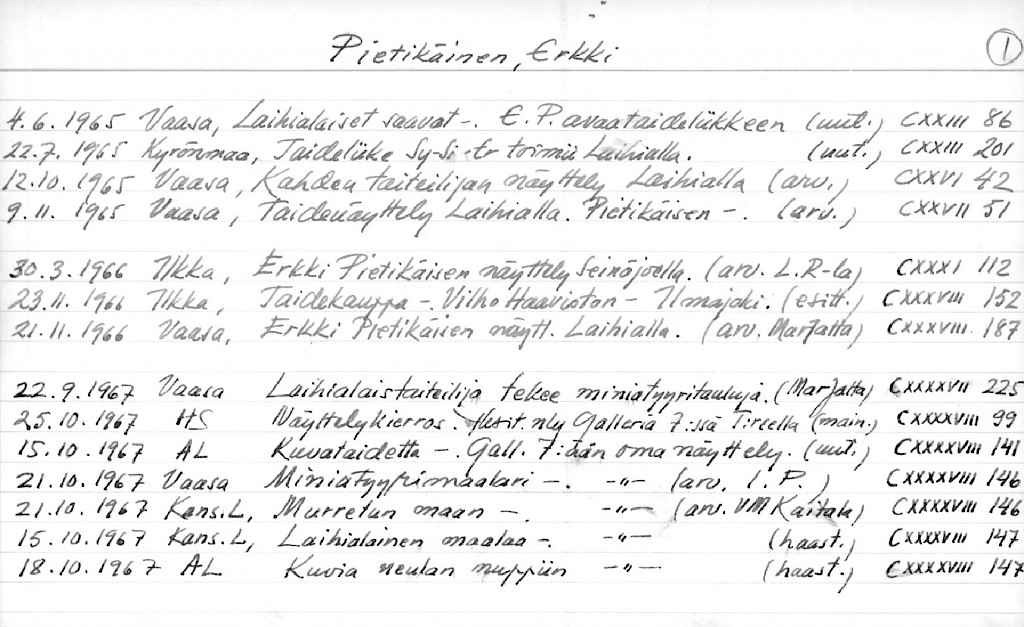 Pietikäinen, Erkki
1
4.6.1965 Vaasa, Laihialaiset saavat -. E.P. avaa taideliikkeen (uut.) CXXIII 86
22.7.1965 Kyrönmaa, Taideliike Sy-Si-Tr toimii Laihialla. (uut.) CXXIII 201
12.10.1965 Vaasa, Kahden taiteilijan näyttely Laihialla (arv.) CXXVI 42
9.11.1965 Vaasa, Taidenäyttely Laihialla. Pietikäisen -. (arv.) CXXVII 51
30.3.1966 Ilkka, Erkki Pietikäisen näyttely Seinäjoella. (arv. L.R-la) CXXXI 112
23.11.1966 Ilkka, Taidekauppa -. Vilho Haavioton - Ilmajoki. (esitt.) CXXXVIII 152
21.11.1966 Vaasa, Erkki Pietikäisen näytt. Laihialla. (arv. Marjatta) CXXXVIII 187
22.9.1967 Vaasa Laihialaistaiteilija tekee miniatyyritauluja. (Marjatta) CXXXXVII 225
25.10.1967 HS Näyttelykierros. nly Galleria 7:ssä (main.) CXXXXVIII 99
15.10.1967 AL Kuvataidetta -. Gall. 7:ään oma näyttely. (uut.) CXXXXVIII 141
21.10.1967 Vaasa Miniatyyrimaalari -. -"- (arv. I.P.) CXXXXVIII 146
21.10.1967 Kans.L, Murretun maan -. -"- (arv. VM Kaitala) CXXXXVIII 146
15.10.1967 Kans.L, Laihialainen maalaa -. -"- (haast.) CXXXXVIII 147
18.10.1967 AL Kuvia neulan nuppiin -"- (haast.) CXXXXVIII 147